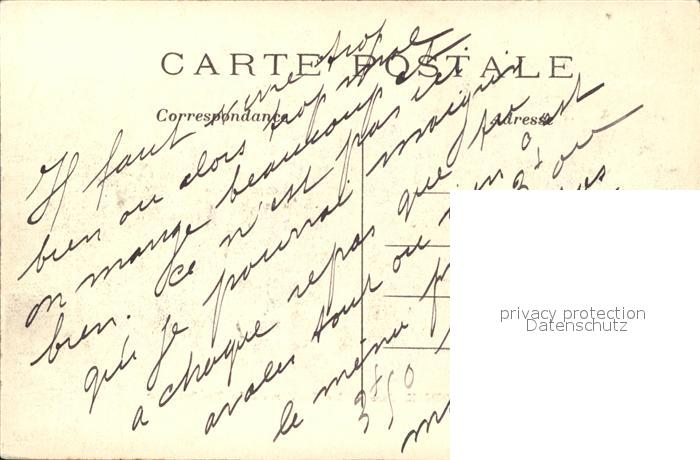 CARTE POSTALE
Correspondance
Adresse
Il faut vivre trop
bien ou alors trop mal
on mange beaucoup et
bien. Ce n'est pas ici
qu'il je pourrai maigrir
a chaque repas que tu
avales tout ou rien c'est
le même 3f ou
3f50
privacy protection
Datenschutz